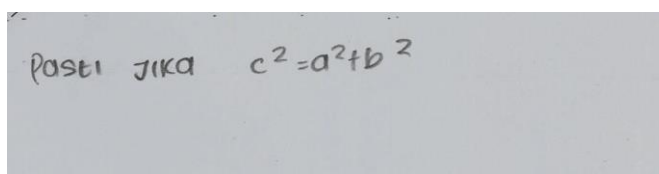 Pasti JIKA c²=a²+b²